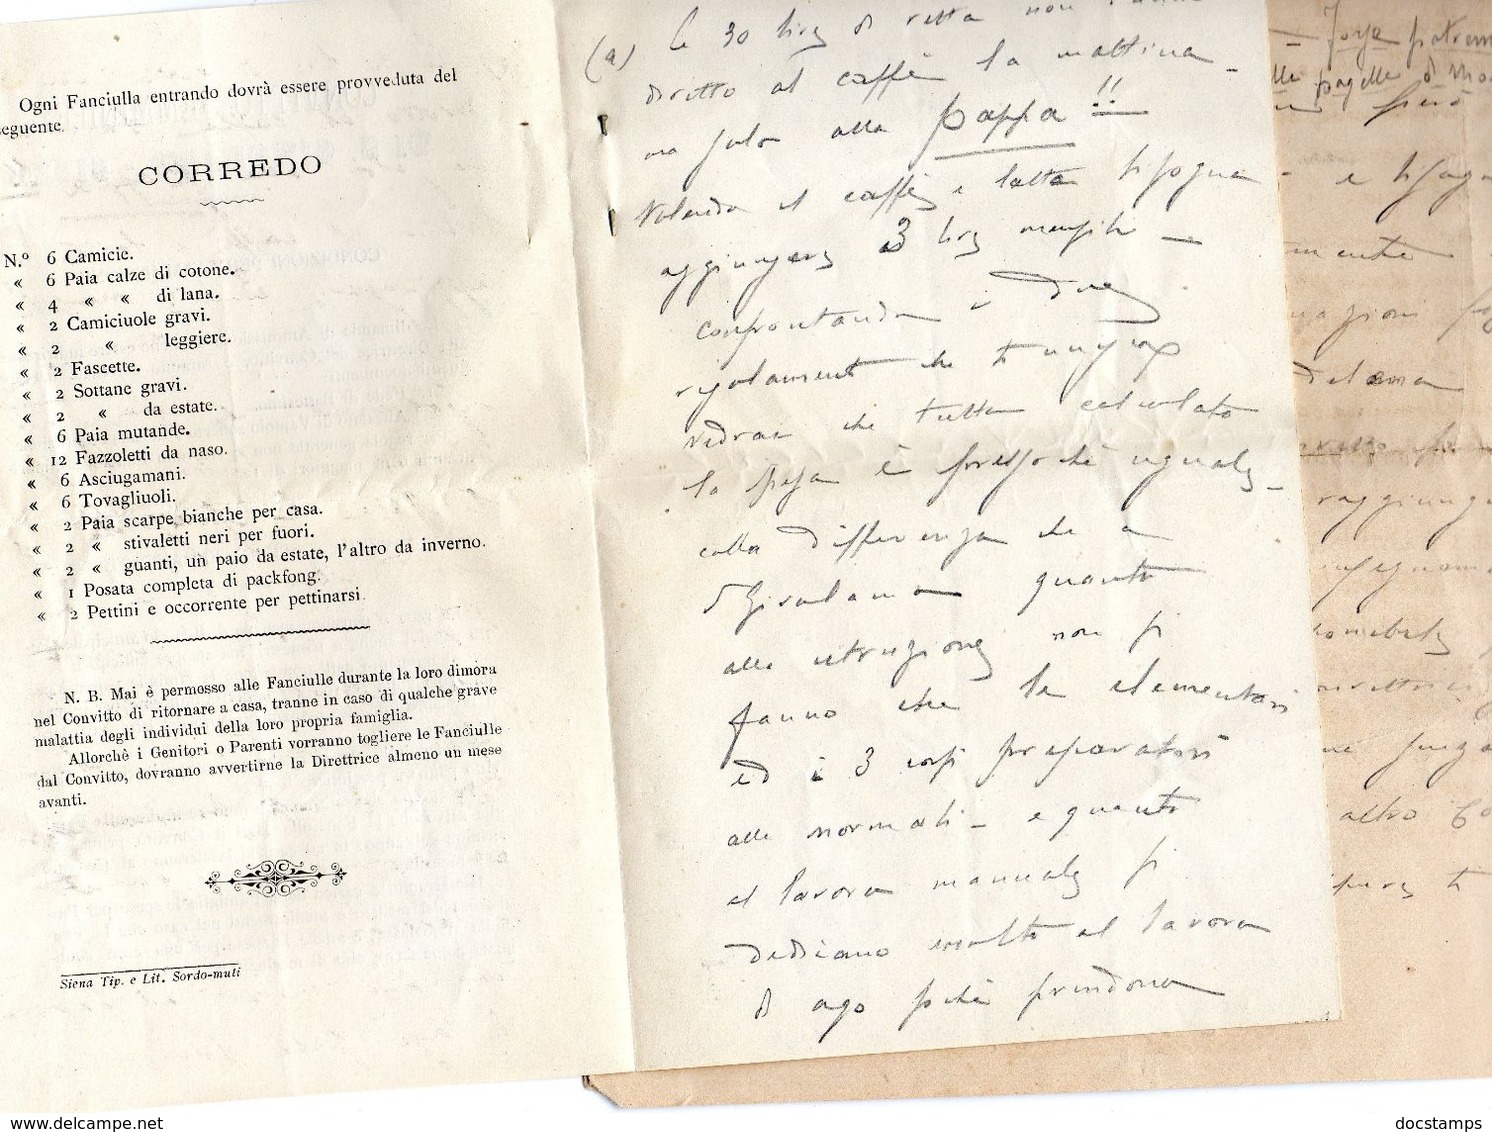 Ogni Fanciulla entrando dovrà essere provveduta del
seguente.
CORREDO
N.º 6 Camicie.
« 6 Paia calze di cotone.
« 4 « « di lana.
« 2 Camiciuole gravi.
« 2 « leggiere.
« 2 Fascette.
« 2 Sottane gravi.
« 2 « da estate.
« 6 Paia mutande.
« 12 Fazzoletti da naso.
« 6 Asciugamani.
« 6 Tovagliuoli.
« 2 Paia scarpe bianche per casa.
« 2 « stivaletti neri per fuori.
« 2 « guanti, un paio da estate, l'altro da inverno.
« 1 Posata completa di packfong.
« 2 Pettini e occorrente per pettinarsi.
N. B. Mai è permosso alle Fanciulle durante la loro dimora
nel Convitto di ritornare a casa, tranne in caso di qualche grave
malattia degli individui della loro propria famiglia.
Allorchè i Genitori o Parenti vorranno togliere le Fanciulle
dal Convitto, dovranno avvertirne la Direttrice almeno un mese
avanti.
Siena Tip. e Lit. Sordo-muti
(a) le 30 lire di retta non danno
diritto al caffè la mattina -
ma solo alla pappa !!
Volendo il caffè e latte bisogna
aggiungere 3 lire mensili -
confrontando i due
regolamenti che ti unisco
vedrai che tutto calcolato
la spesa è pressochè uguale -
colla differenza che a
S Girolamo quanto
alla istruzione non si
fanno che le elementari
ed i 3 corsi preparatori
alle normali - e quanto
al lavoro manuale si
dedicano molto al lavoro
di ago
pagelle di
però
e bisogna
altro 60
www.delcampe.net
docstamps